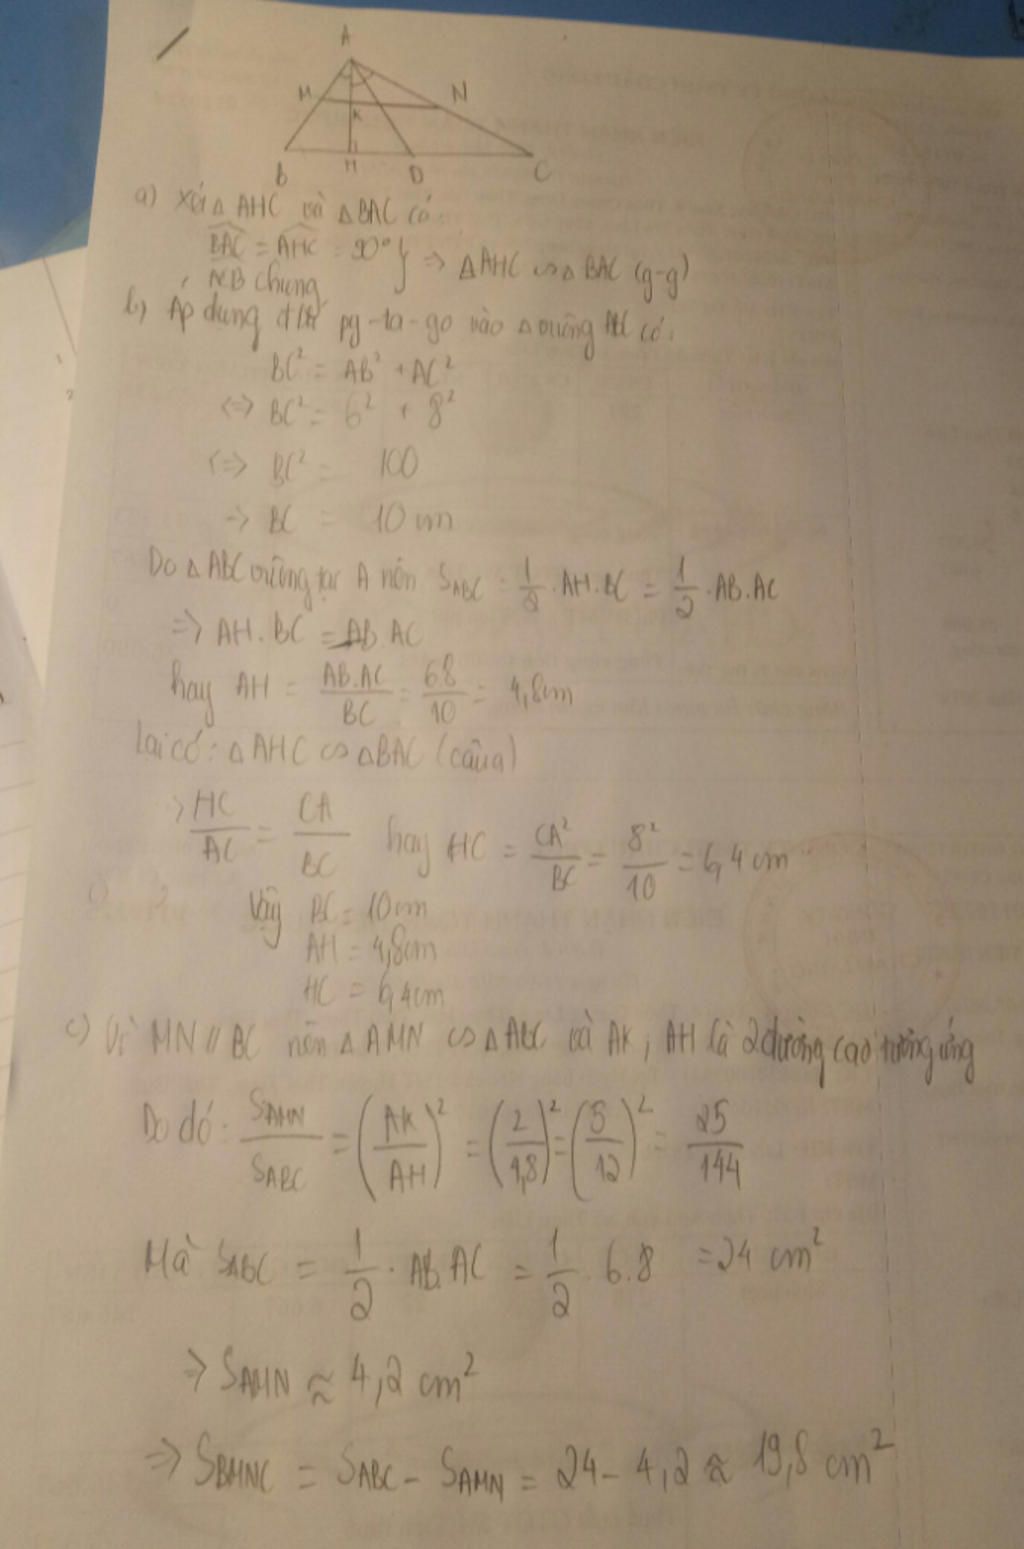 A
M
N
K
B
H
D
C
a) Xét △ AHC và △BAC có:
BAC = AHC = 90° } ⇒ △AHC ∽ △ BAC (g-g)
ACB chung
b) Áp dụng đlý py-ta-go vào △ vuông ABC có:
BC² = AB² + AC²
<=> BC² = 6² + 8²
<=> BC² = 100
=> BC = 10 cm
Do △ ABC vuông tại A nên S_ABC = 1/2 . AH.BC = 1/2 . AB.AC
=> AH.BC = AB.AC
hay AH = AB.AC/BC = 6.8/10 = 4,8cm
Lại có: △ AHC ∽ △BAC (câu a)
=> HC/AC = CA/BC hay HC = CA²/BC = 8²/10 = 6,4 cm
Vậy BC = 10cm
AH = 4,8cm
HC = 6,4cm
c) Vì MN // BC nên △ AMN ∽ △ ABC và AK, AH là 2 đường cao tương ứng
Do đó: S_AMN/S_ABC = (AK/AH)² = (2/4,8)² = (5/12)² = 25/144
Mà S_ABC = 1/2 . AB.AC = 1/2 . 6.8 = 24 cm²
=> S_AMN ≈ 4,2 cm²
=> S_BMNC = S_ABC - S_AMN = 24 - 4,2 ≈ 19,8 cm²